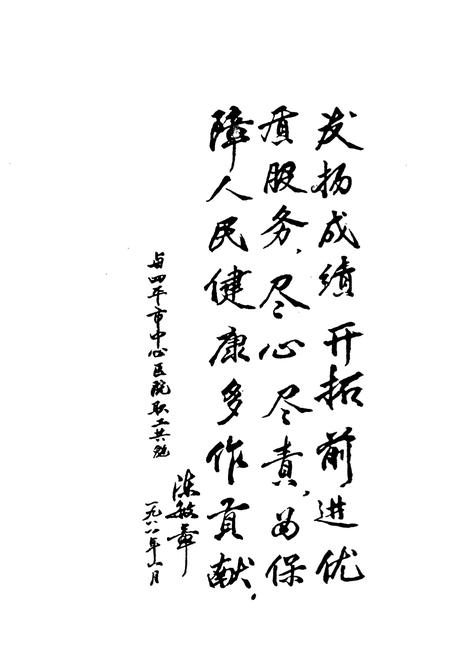 发扬成绩开拓前进优
质服务，尽心尽责，为保
障人民健康多作贡献，
与四平市中心医院职工共勉
陈敏章
一九八八年八月